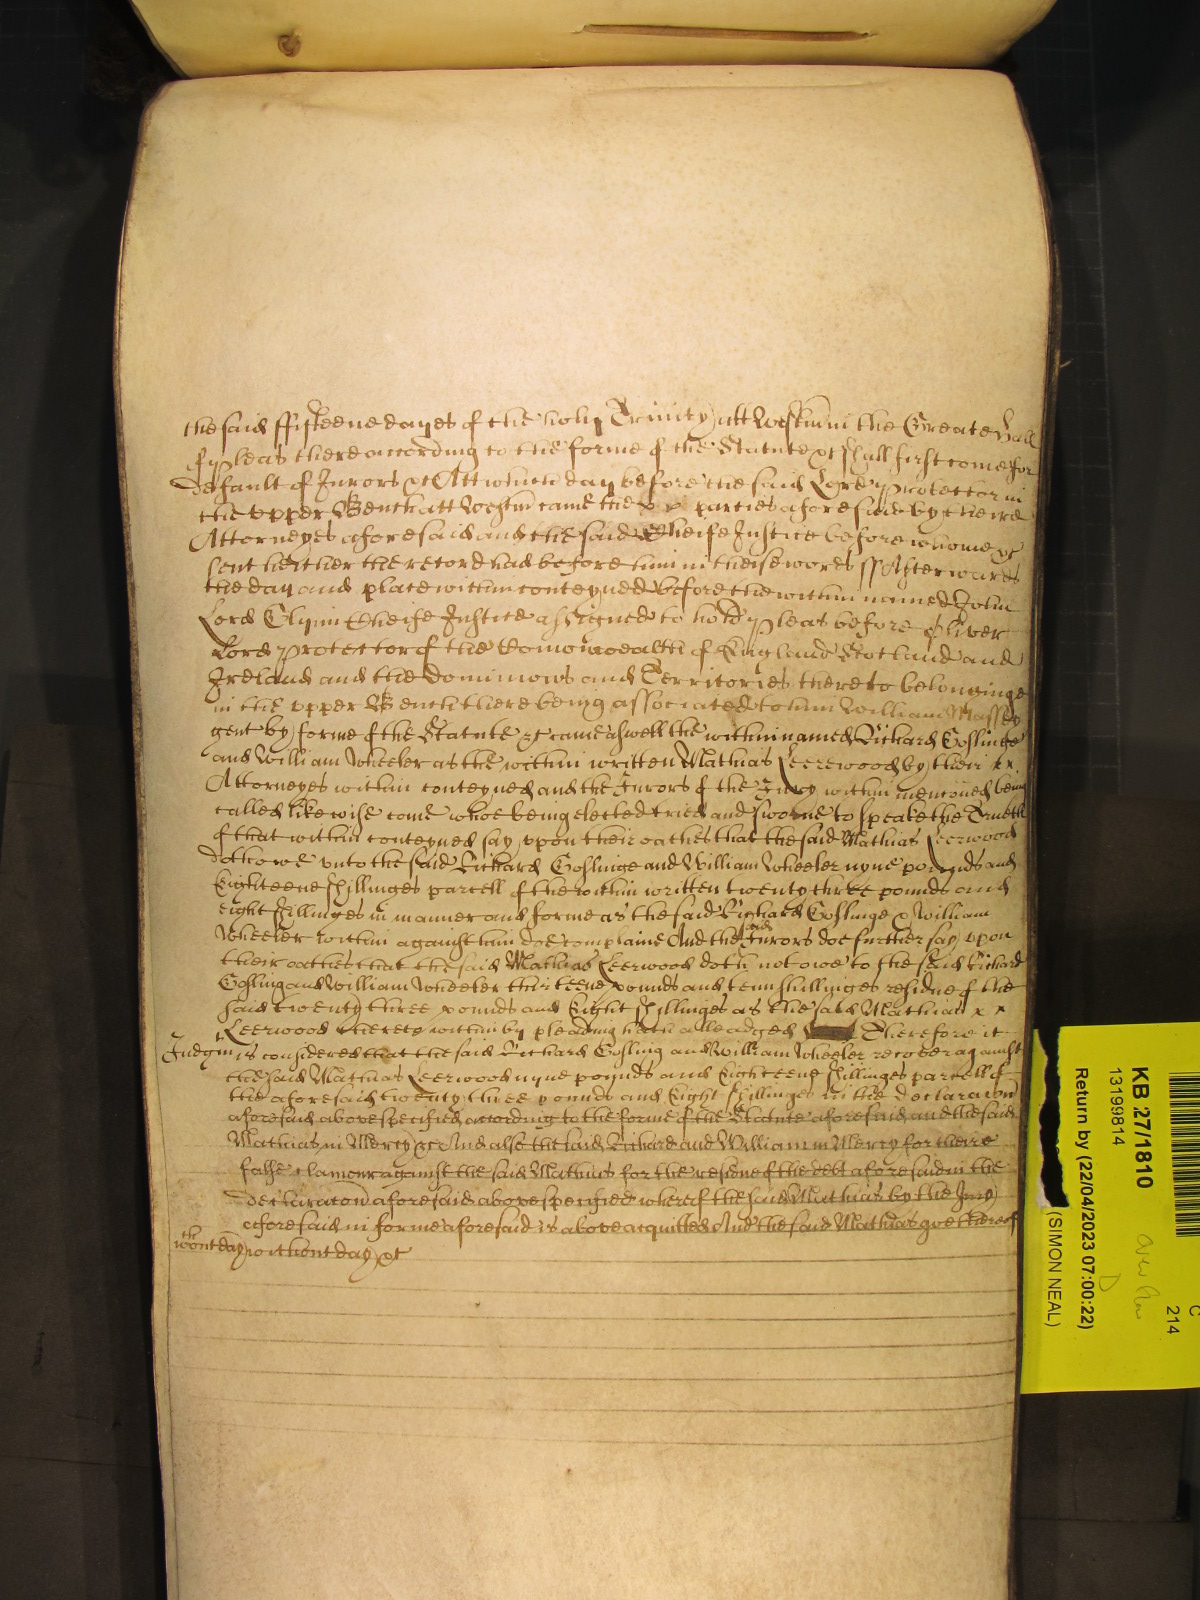 the said ffifteene dayes of the holy Trinity att Westm in the Greate Hall
of pleas there according to the forme of the Statute &c shall first come for
default of Jurors &c Att which day before the said Lord Protector in
the upper Bench att Westm came the x x parties aforesaid by theire
Attorneyes aforesaid and the said Cheife Justice before whome &c
sent heither the record had before him in theise words ss Afterwards
the day and place within conteyned before the within named John
Lord Glynn Cheife Justice assigned to hold pleas before Oliver
Lord Protector of the Comonwealth of England Scotland and
Ireland and the Dominions and Territories thereto belonginge
in the upper Bench there being associated to him William Massey
gent by forme of the Statute &c came aswell the within named Richard Goslinge
and William Wheeler as the within written Mathias Leerewood by their x x
Attorneyes within conteyned and the Jurors of the Jury within mencioned being
called likewise come whoe being elected tried and sworne to speake the Trueth
of that within conteyned say upon their oathes that the said Mathias Leerwood
doth owe unto the said Richard Goslinge and William Wheeler nyne pounds and
Eighteene shillinges parcell of the within written twenty three pounds and
eight shillinges in manner and forme as the said Richard Goslinge & William
Wheeler within against him doe complaine And the said Jurors doe further say upon
their oathes that the said Mathias Leerwood doth not owe to the said Richard
Gosling and William Wheeler thirteene pounds and tenn shillinges residue of the
said twenty three pounds and Eight shillinges as the said Mathias x x
Leerwood thereto within by pleading hath alleadged Therefore it
Judgm is considered that the said Richard Gosling and William Wheeler recover against
the said Mathias Leerwood nyne pounds and Eighteene shillinges parcell of
the aforesaid twenty three pounds and Eight shillinges in the declaracon
aforesaid above specified according to the forme of the Statute aforesaid and the said
Mathias in Mercy &c And alsoe the said Richard and William in Mercy for theire
false clamour against the said Mathias for the residue of the debt aforesaid in the
declaracon aforesaid above specified whereof the said Mathias by the Jury
aforesaid in forme aforesaid is above acquitted And the said Mathias goe thereof
wthout day without day &c
KB 27/1810
13199814
Return by (22/04/2023 07:00:22)
(SIMON NEAL)
C
214
D